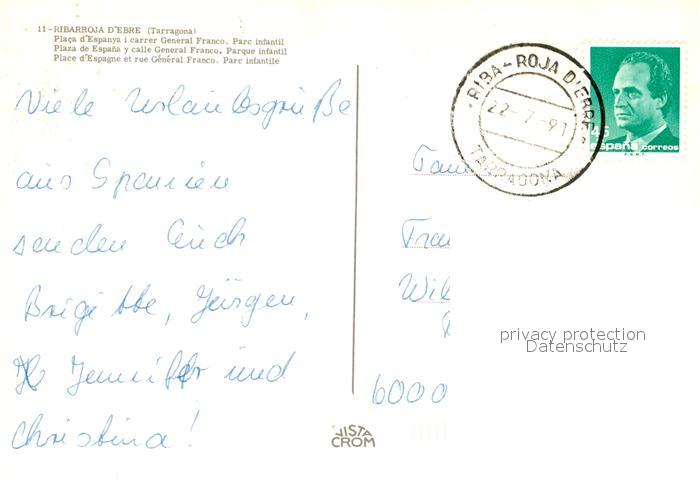 11-RIBARROJA D'EBRE (Tarragona)
Plaça d'Espanya i carrer General Franco. Parc infantil
Plaza de España y calle General Franco. Parque infantil
Place d'Espagne et rue Général Franco. Parc infantile
Viele Urlaubsgrüße
aus Spanien
senden Euch
Brigitte, Jürgen,
Jennifer und
Christina!
RIBA-ROJA D'EBRE
22-7-91
TARRAGONA
45
españa correos
F.N.M.T.
Fam
Fran
Wil
6000
privacy protection
Datenschutz
VISTA
CROM